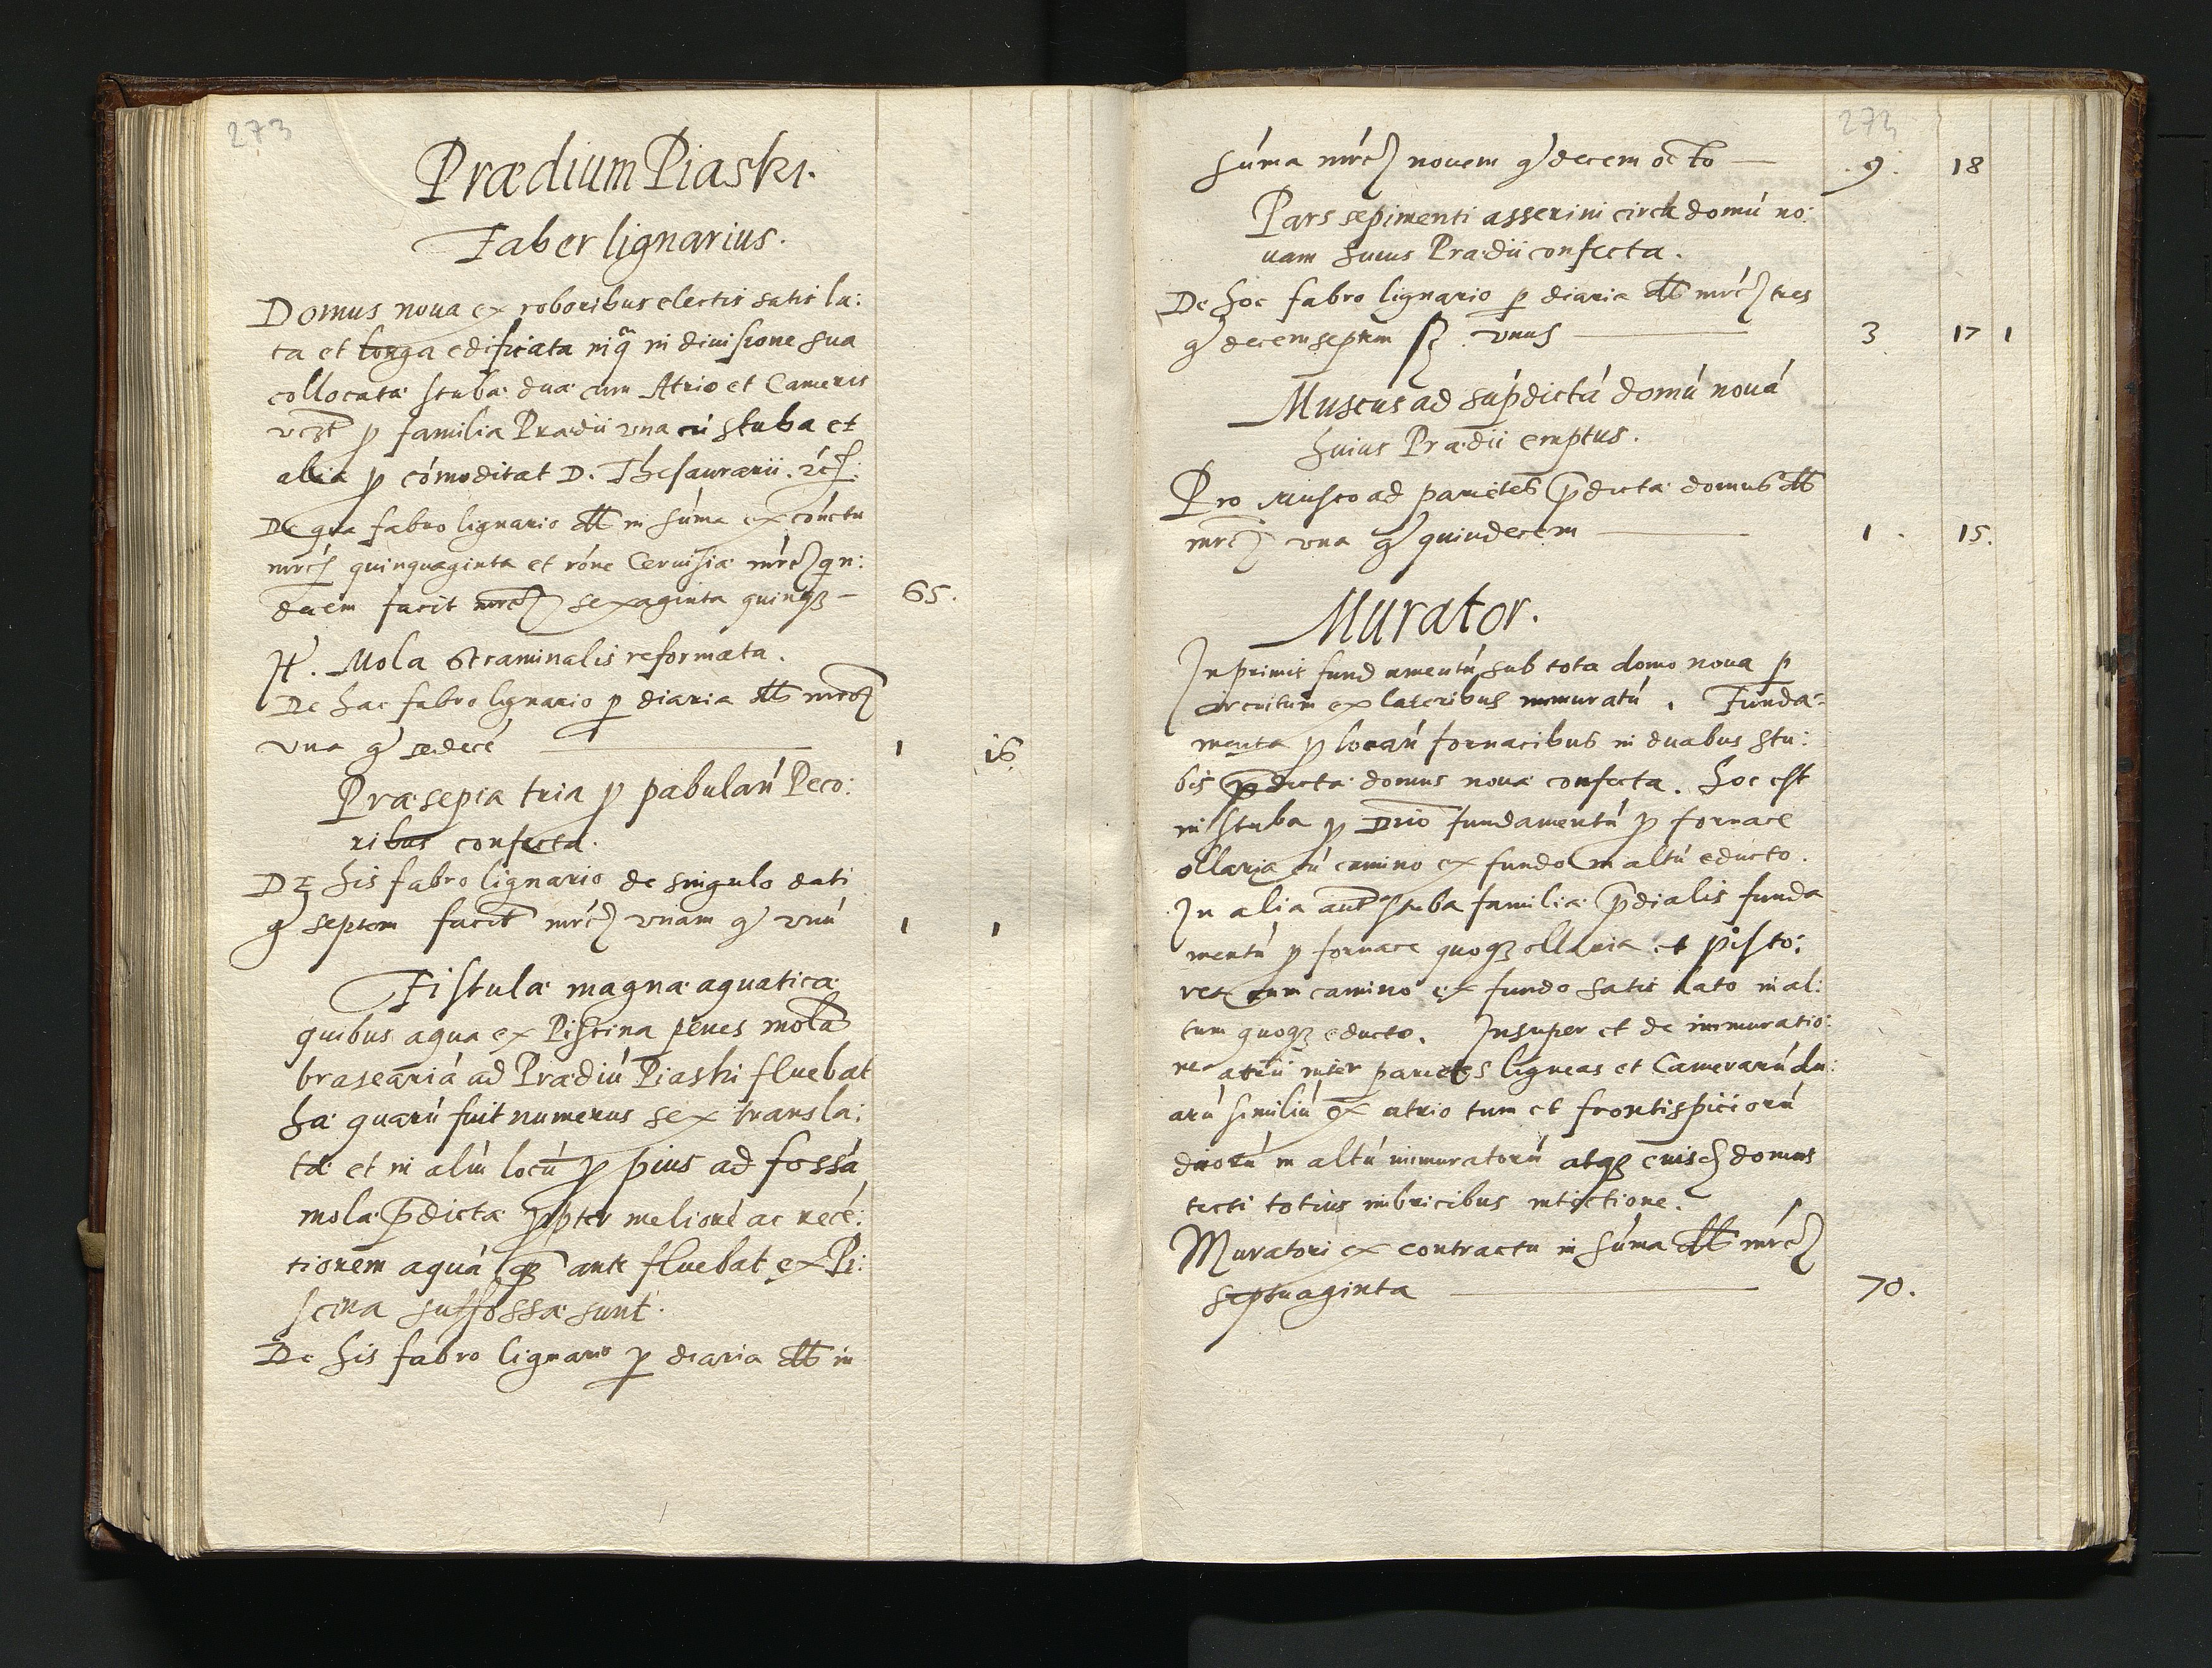 273
Prædium Piaski.
Faber lignarius.
Domus noua ex roboribus electis satis la:
ta et longa edificata inq in diuisione sua
collocatæ stubæ duæ cum Atrio et Cameris
vcz p familia Prædii una cu stuba et
alia p comoditat D. Thesaurarii.
De qua fabro lignario dtt in sūma ex conctu
mrc quinquaginta et rōne Ceruisiæ mrc qin:
decem facit mrc sexaginta quinqz — 65.
It. Mola Straminalis reformata.
De hac fabro lignario p diaria dtt mrc
una g sedecē — 1 16.
Præsepia tria p pabulatiū Peco:
ribus confecta.
De his fabro lignario de singulo dati
g septem facit mrc vnam g vnū 1 1
Fistulæ magnæ aquaticæ
quibus aqua ex Piscina penes molā
braseariā ad Prædiū Piaski fluebat
hæ quarū fuit numerus sex transla:
tæ et in aliū locū p pius ad fossā
molæ pdictæ ppter meliorē ac recē:
tiorem aquā q ante fluebat ex Pi:
scina suffossæ sunt.
De his fabro lignario p diaria dtt in
273
sūma mrc nouem g decem octo — 9. 18
Pars sepimenti asserini circa domū no:
uam huius Prædii confecta.
De hoc fabro lignario p diaria dtt mrc tres
g decem septem ß. vnus — 3 17 1
Muscus ad supdictā domū nouā
huius Prædii emptus.
Pro Musco ad parietes pdictæ domus dtt
mrc vna g quindecem — 1. 15.
Murator.
Inprimis fundamentū sub tota domo noua p
circuitum ex lateribus immuratū. Funda:
menta p locan fornacibus in duabus stu:
bis pdictæ domus nouæ confecta. Hoc est
in stuba p Dnio fundamentū p fornace
ollaria cū camino ex fundo in altū educto.
In alia aut stuba familiæ pdialis funda
mentū p fornace quoqz ollaria et pisto:
rea cum camino ex fundo satis lato in al:
tum quoqz educto. Insuper et de immuratio:
ne inter parietes ligneas et Camerarū du:
arū similiū ex atrio tum et frontispiciorū
duorū in altū immuratorū atqz domus
tecti totius imbricibus intectione.
Muratori ex contractu in sūma dtt mrc
septuaginta — 70.